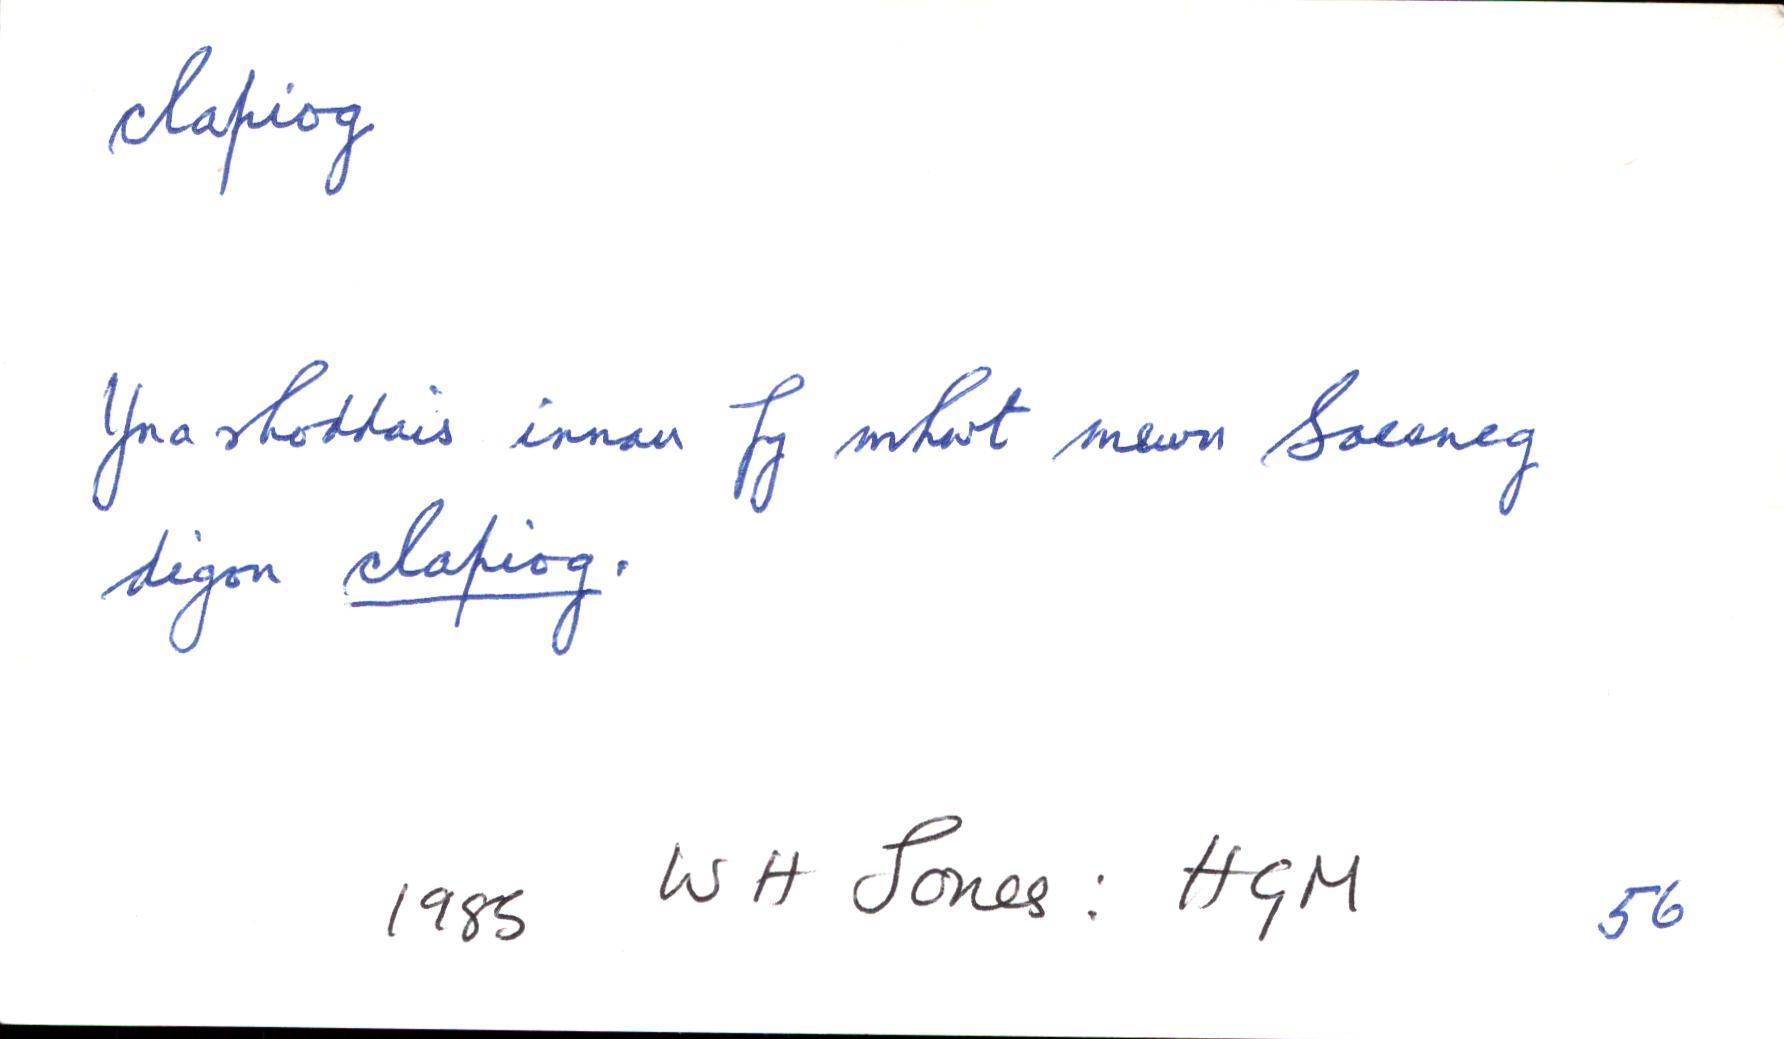 clapiog
Yna rhoddais innau fy mhwt mewn Saesneg
digon clapiog.
1985 W H Jones: HGM 56